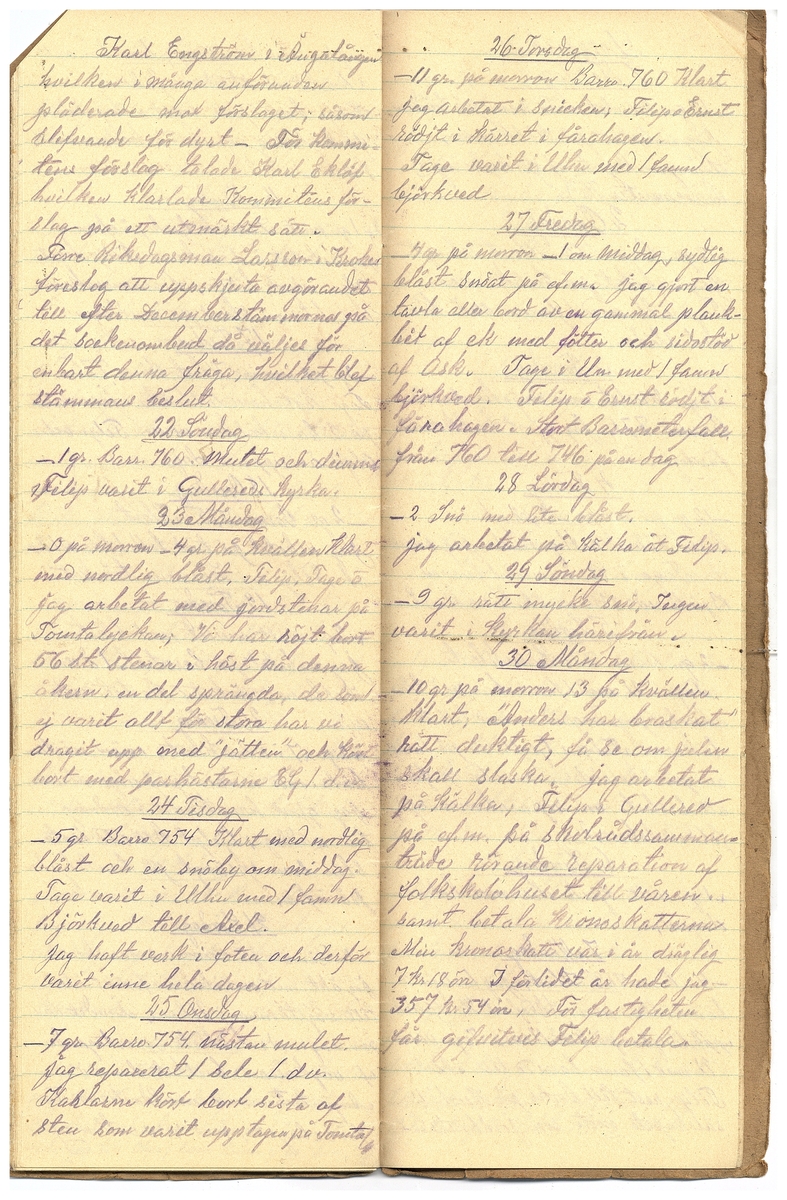 Karl Engström i Ängatången
hvilken i många anföranden
pläderade mot förslaget, såsom
blefvande för dyrt – För Kommi-
téns förslag talade Karl Eklöf
hvilken klarlade Kommiténs för-
slag på ett utmärkt sätt.
Förre Riksdagsman Larsson i Krokes
föreslog att uppskjuta avgörandet
till efter Decemberstämmornas på
det sockenombud då väljes för
enbart denna fråga, hvilket blef
stämmans beslut.
22 Söndag
–1 gr. Barr. 760. Mulet och dimma
Felip varit i Gullereds kyrka.
23 Måndag
–0 på morron –4 gr. på kvällen Klart
med nordlig blåst. Felip, Tage å
jag arbetat med jordstenar på
Tomtalyckan; Vi har röjt bort
56 st. stenar i höst på denna
åkern. en del sprängda, de som
ej varit allt för stora har vi
dragit upp med "jätten" och kört
bort med parhästarne EG 1. d.v.
24 Tisdag
–5 gr. Barro 754 Klart med nordlig
blåst och en snöby om middag.
Tage varit i Ulhu med 1 famn
Björkved till Axel.
Jag haft verk i foten och derför
varit inne hela dagen
25 Onsdag
–7 gr. Barro 754. nästan mulet.
Jag reparerat 1 Sele 1. dv.
Karlarne kört bort sista af
sten som varit upptagen på Tomtal
26 Torsdag
–11 gr. på morron Barro. 760 Klart
jag arbetat i snickeri, Felip o Ernst
rödjt i Kärret i fårahagen.
Tage varit i Ulhu med 1 famn
björkved
27 Fredag
–4 gr på morron –1 om middag, sydlig
blåst snöat på ef.m. jag gjort en
tavla eller bord av en gammal plank-
bit af ek med fötter och sidostöd
af Ask. Tage i Um med 1 famn
björkved. Felip å Ernst rödjt i
fårahagen. Stort Barrometerfall
från 760 till 746 på en dag
28 Lördag
–2 Snö med lite blåst.
jag arbetat på Kälka åt Felip.
29 Söndag
–9 gr. rätt mycke snö, Ingen
varit i Kyrkan härifrån.
30 Måndag
–10 gr på morron 13 på Kvällen
Klart, "Anders har braskat"
rätt duktigt, få se om julen
skall slaska. jag arbetat
på Kälka, Felip i Gullered
på ef.m. på skolrådssamman-
träde rörande reparation af
folkskolohuset till våren.
samt betala kronoskatterna
Min kronoskatt vär i år dräglig
7 kr 18 öre I förlidet år hade jag
357 kr. 54 öre, För fastigheten
får gifvitvis Felip betala.